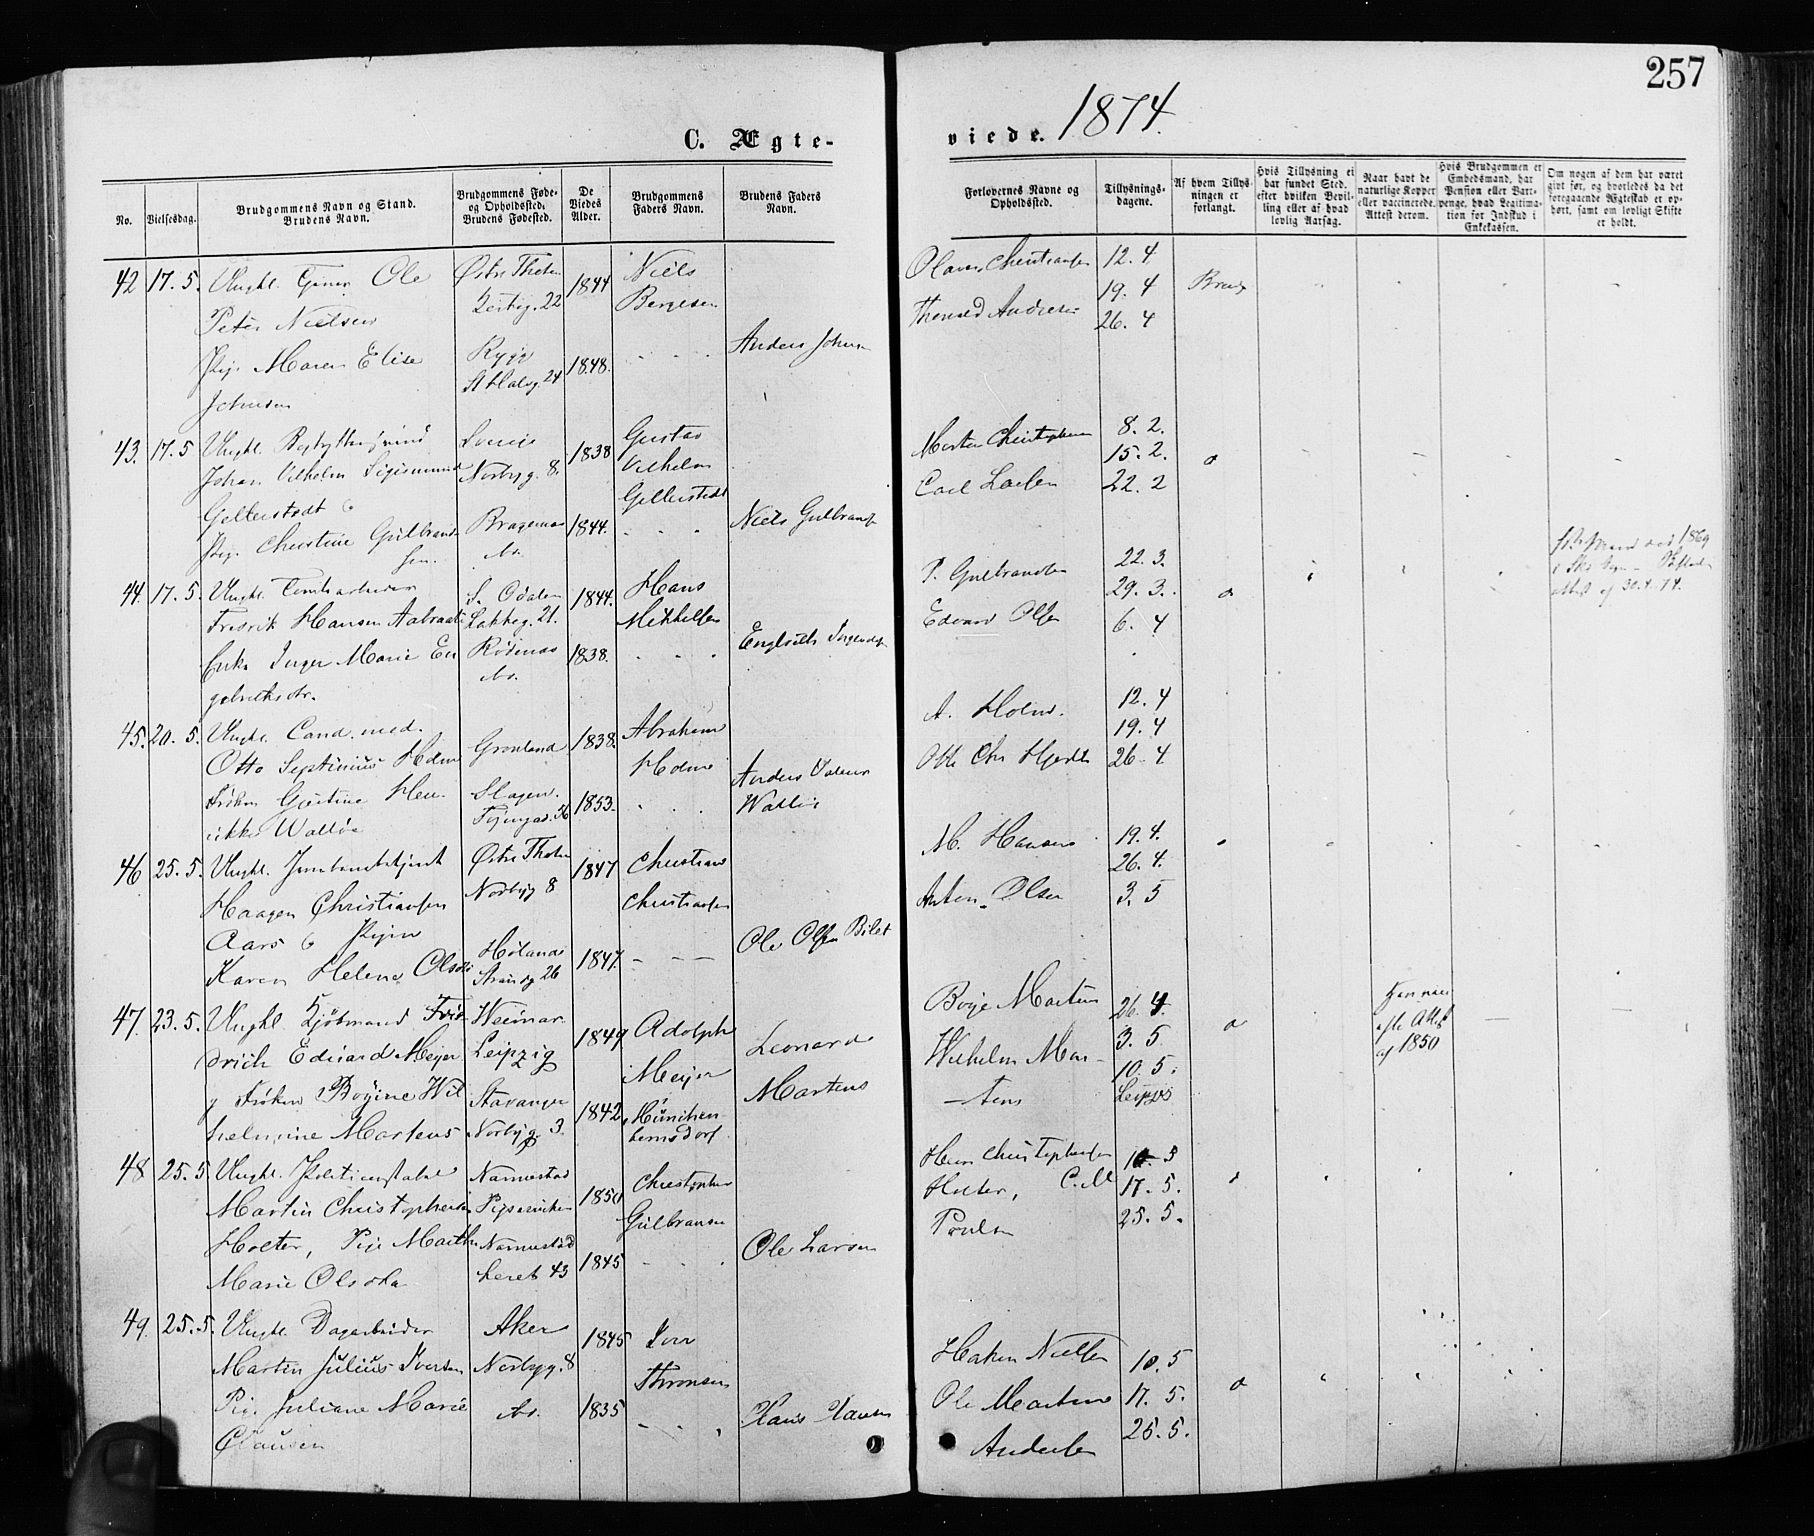 257
C. Ægte-
viede. 1874.
No.
Vielsesdag.
Brudgommens Navn og Stand.
Brudens Navn.
Brudgommens Føde-
og Opholdssted.
Brudens Fødested.
De
Viedes
Alder.
Brudgommens
Faders Navn.
Brudens Faders
Navn.
Forlovernes Navne og
Opholdssted.
Tillysnings-
dagene.
Af hvem Tillys-
ningen er
forlangt.
Hvis Tillysning ei
har fundet Sted,
efter hvilken Bevil-
ling eller af hvad
lovlig Aarsag.
Naar havt de
naturlige Kopper
eller vaccinerede.
Attest derom.
Hvis Brudgommen er
Embedsmand, har
Pension eller Var-
penge, hvad Legitima-
tion for Indskud i
Enkekassen.
Om nogen af dem har været
givt før, og hvorledes da det
foregaaende Ægteskab er op-
hørt, samt om lovligt Skifte
er holdt.
42 17. 5. Ungkl. Ole Østre Thoten 1844 Niels
Peter Nielsen 22 Bergesen
Pige Maren Elise Rygge 1848. Anders Johns
Johnsen 24
Olaves Christiansen 12. 4
19. 4
Andresen 26. 4
43. 17. 5 Ungkl. 1838 Gustav
Johan Vilhelm Sigismund Norbyg. 8. Vilhelm
Gellerstedt Gellerstedt
Pige Christine Gulbrand- Bragernes 1844. Niels Gulbrands
sen. do.
Morten Christophersen 8. 2.
15. 2.
Carl Larsen 22. 2
44. 17. 5. Ungkl. S. Odalen 1844. Hans
Fredrik Hansen Aabraaten Lakkeg. 21. Mikkelsen
Enke Inger Marie En Rødenes 1838. Engbreth Jørgensen
gebrethsdtr. do.
P. Gulbrandsen 22. 3.
29. 3.
Edvard Olsen 6. 4
1869
30. 4. 74.
45. 20. 5. Ungkl. Cand. med. Grønland 1838. Abraham
Otto Septimius Holm Holm
Frøken Gjertine Hen Slagen 1853. Anders
rikke Walløe 56 Walløe
A. Holm. 12. 4
19. 4
Otto Chr Hjorth 26. 4
46 25. 5. Ungkl. Østre Thoten 1847 Christian
Haagen Christiansen Norbyg 8 Christiansen
Aars & Pigen
Karen Helene Olsdtr Høland 1847. Ole Olsen Bilet
Strandg 26
M. Hansen 19. 4.
26. 4.
Anton Olsen 3. 5
47. 23. 5. Ungkl. Kjøbmand Frie Weimar 1849 Adolph
drich Eduard Meyer Leipzig Meyer
g Frøken Bøyine Wil Stavanger 1842 München-
helmine Martens Norbyg. 3. bernsdorf
Leonard
Martens
Boye Martens 26. 4.
Wilhelm Mar- 3. 5.
tens 10. 5.
Leipzig
efter Attest
af 1850
48 25. 5 Ungkl. Politikonstabel Nannestad 1850 Christopher
Martin Christophersen Pipervicken Gulbransen
Holter, Pige Marthe Nannestad
Marie Olsdtr 43 1845 Ole Larsen
Hans Christophersen 10. 5
Holter, C. M 17. 5.
Poulsen 25. 5.
49. 25. 5. Ungkl. Dagarbeider Aker 1845 Iver
Martin Julius Iversen Norbyg. 8 Thronsen
Pig. Juliane Marie do. 1835 Hans Hansen
Clausen
Haken Nielsen 10. 5
Ole Martin 17. 5.
Andersen 25. 5.